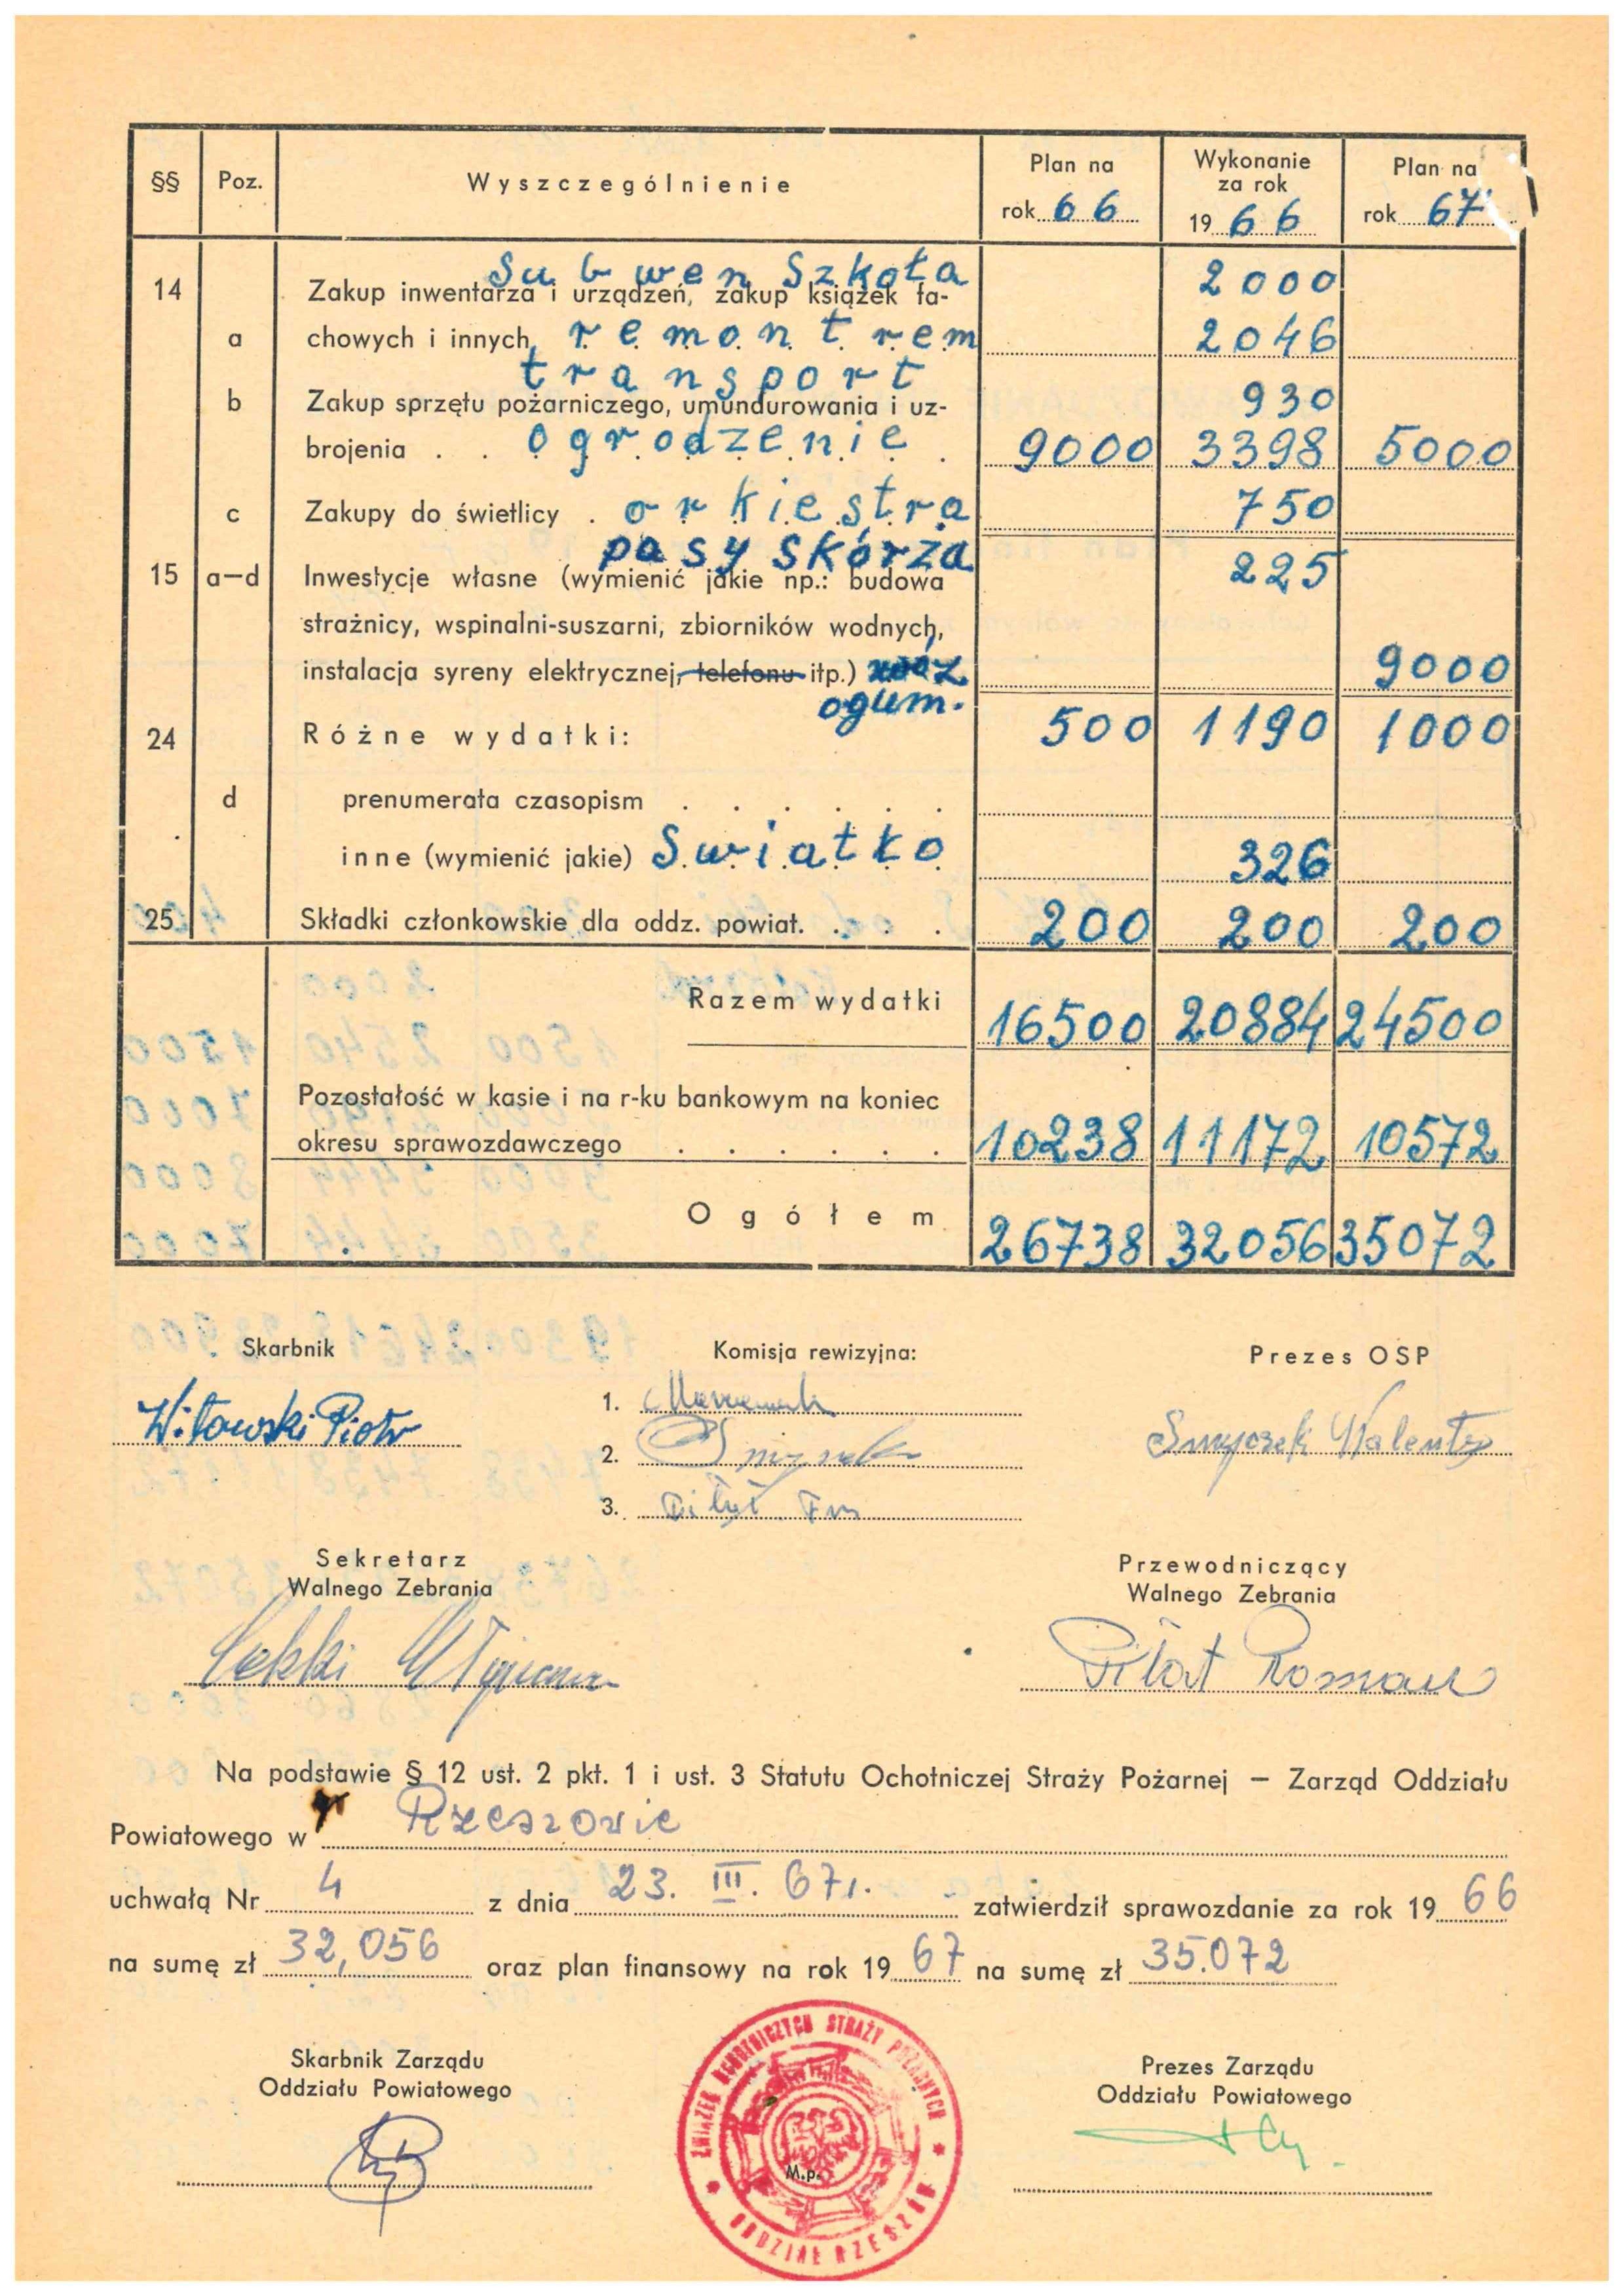 §§ Poz. Wyszczególnienie Plan na rok 66 Wykonanie za rok 1966 Plan na rok 67
Subwen Szkoła 2000
14 Zakup inwentarza i urządzeń, zakup książek fa-
a chowych i innych, remont rem 2046
transport 930
b Zakup sprzętu pożarniczego, umundurowania i uz-
brojenia . . ogrodzenie . 9000 3398 5000
c Zakupy do świetlicy . orkiestra 750
pasy skórza 225
15 a—d Inwestycje własne (wymienić jakie np.: budowa
strażnicy, wspinalni-suszarni, zbiorników wodnych,
instalacja syreny elektrycznej, telefonu itp.) wóz 9000
ogum.
24 Różne wydatki: 500 1190 1000
d prenumerata czasopism . . . . . .
inne (wymienić jakie) Swiatło 326
25 Składki członkowskie dla oddz. powiat. . . . 200 200 200
Razem wydatki 16500 20884 24500
Pozostałość w kasie i na r-ku bankowym na koniec
okresu sprawozdawczego . . . . . . 10238 11172 10572
Ogółem 26738 32056 35072
Skarbnik Komisja rewizyjna: Prezes OSP
Witowski Piotr 1. Smyczek Walenty
2.
3.
Sekretarz Przewodniczący
Walnego Zebrania Walnego Zebrania
Piłat Roman
Na podstawie § 12 ust. 2 pkt. 1 i ust. 3 Statutu Ochotniczej Straży Pożarnej — Zarząd Oddziału
Powiatowego w Rzeszowie
uchwałą Nr 4 z dnia 23. III. 67r. zatwierdził sprawozdanie za rok 1966
na sumę zł 32,056 oraz plan finansowy na rok 1967 na sumę zł 35.072
Skarbnik Zarządu Prezes Zarządu
Oddziału Powiatowego Oddziału Powiatowego
ZWIĄZEK OCHOTNICZYCH STRAŻY POŻARNYCH
M.p.
ODDZIAŁ RZESZÓW